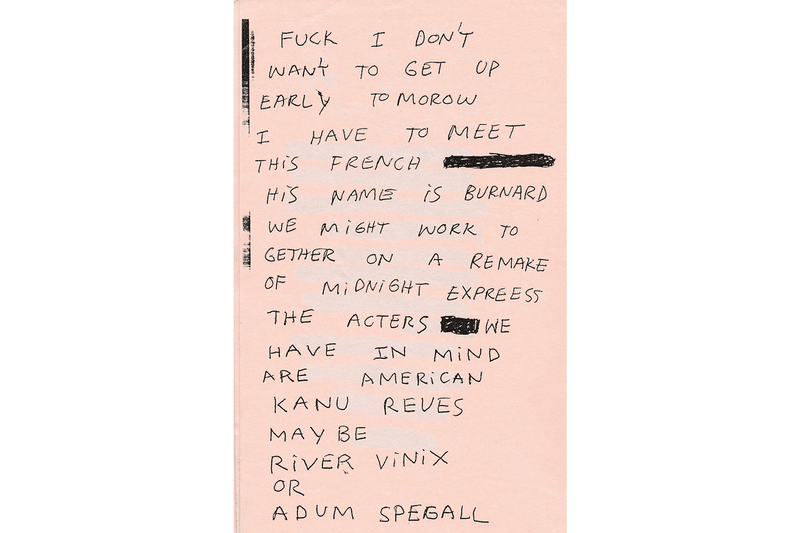 FUCK I DON'T
WANT TO GET UP
EARLY TOMOROW
I HAVE TO MEET
THIS FRENCH
HIS NAME IS BURNARD
WE MIGHT WORK TO
GETHER ON A REMAKE
OF MIDNIGHT EXPREESS
THE ACTERS WE
HAVE IN MIND
ARE AMERICAN
KANU REVES
MAYBE
RIVER VINIX
OR
ADUM SPEGALL